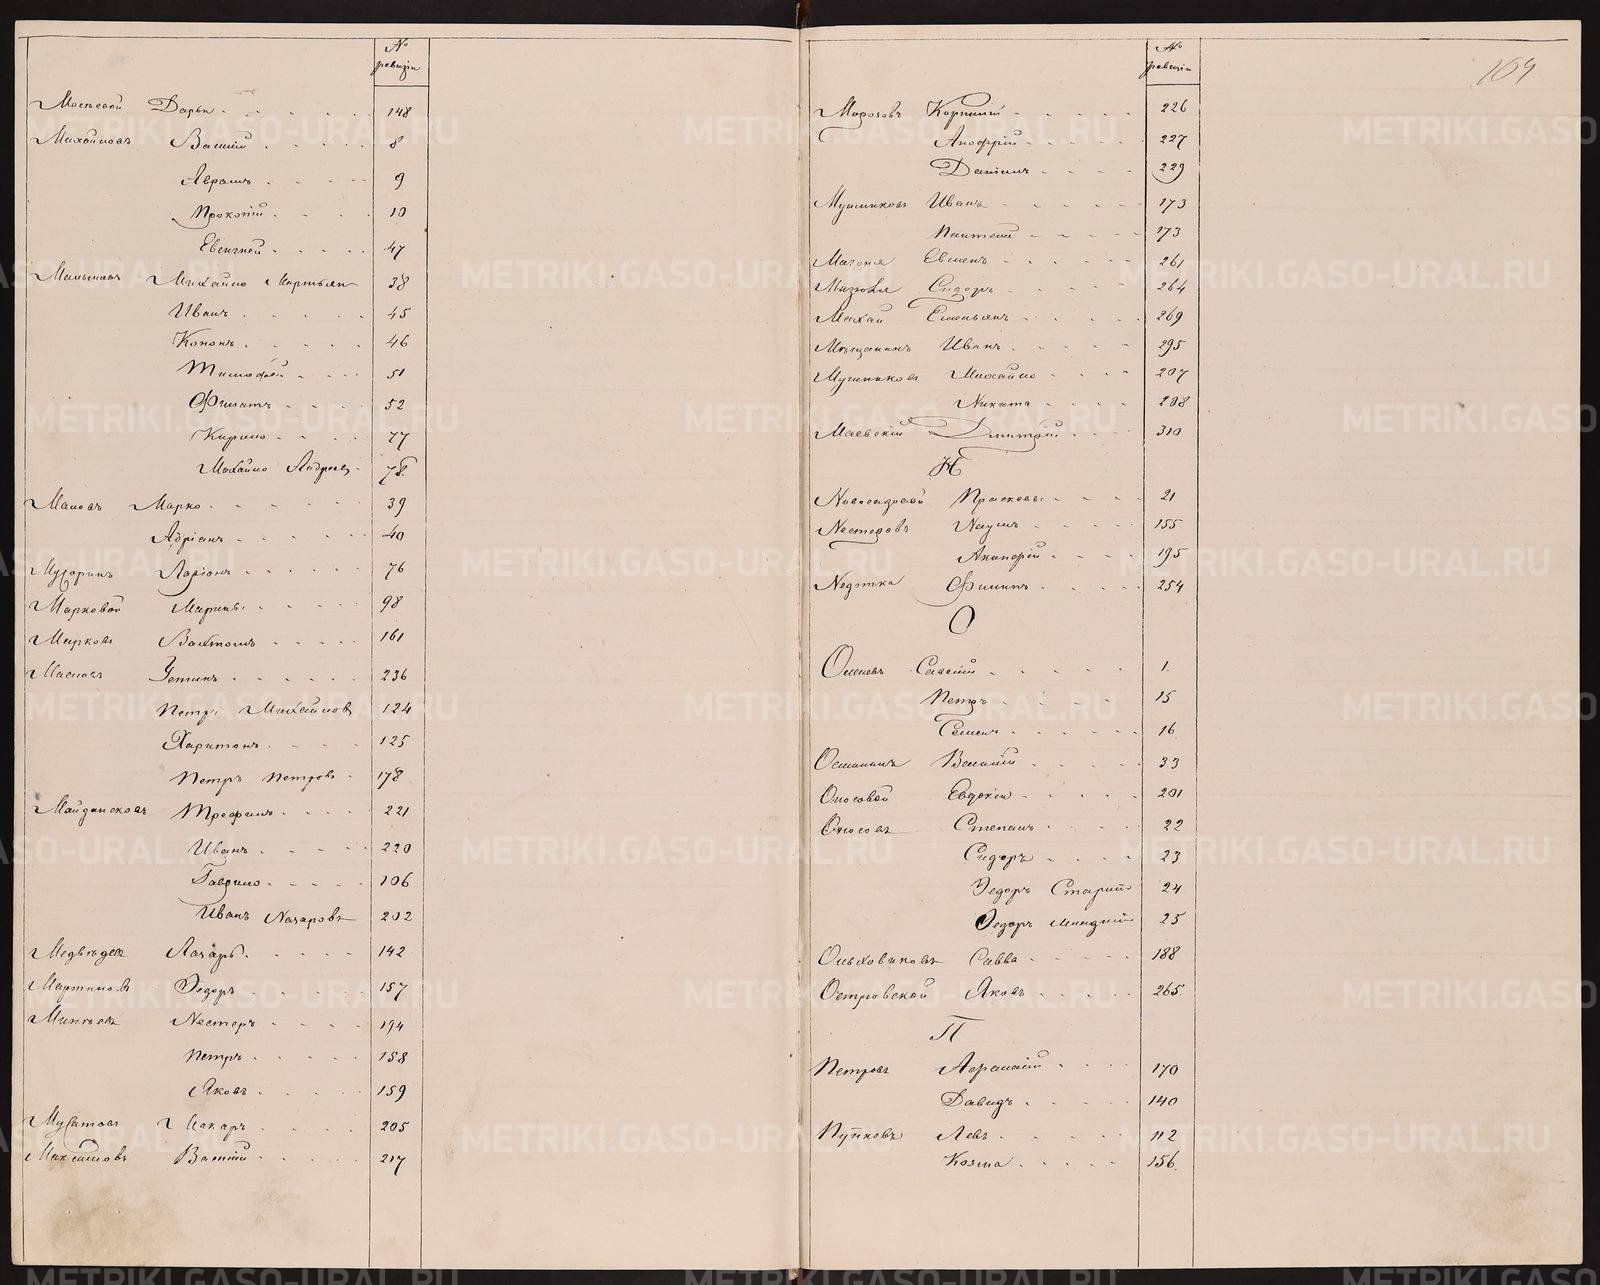 №
ревизіи
Дарьи 148
Михайловъ Василій 8
Аврамъ 9
Прокопій 10
Евсигней 47
Михайло Мартьян 38
Иванъ 45
Кононъ 46
Тимофей 51
Филатъ 52
Кирило 77
Михайло Андреевъ 78.
Марко 39
Адріанъ 40
Ларіонъ 76
Марковой Марины 98
Марковъ 161
Масловъ Устинъ 236
Петръ Михайловъ 124
Харитонъ 125
Петръ Петровъ 178
Майдансковъ Трофимъ 221
Иванъ 220
Гаврило 106
Иванъ Назаровъ 202
Медвѣдевъ Лазарь 142
Мартиновъ Федоръ 157
Минѣевъ Нестеръ 194
Петръ 158
Яковъ 159
Макаръ 205
Максимовъ Василій 217
№
ревизіи
104
Морозовъ Корнилій 226
Аноффрій 227
Данилъ 229
Мушниковъ Иванъ 173
Пантелей 173
Евсеенъ 261
Сидоръ 264
Емельянъ 269
Мѣщанинъ Иванъ 295
Михайло 207
Никита 208
Маевскій Дмитрій 310
Н
Прасковьи 21
Нестеровъ Наумъ 155
Анкифрій 195
Филипъ 254
О
Савелій 1.
Петръ 15
Семенъ 16
Осининъ Василій 33
Оносовой Евдокіи 201
Оносовъ Степанъ 22
Сидоръ 23
Федоръ Старшій 24
Федоръ младшій 25
Ольховиковъ Савва 188
Островской Яковъ 265.
П
Петровъ Афанасій 170
Давидъ 140
Пупковъ Левъ 112
Козма 156.
METRIKI.GASO-URAL.RU